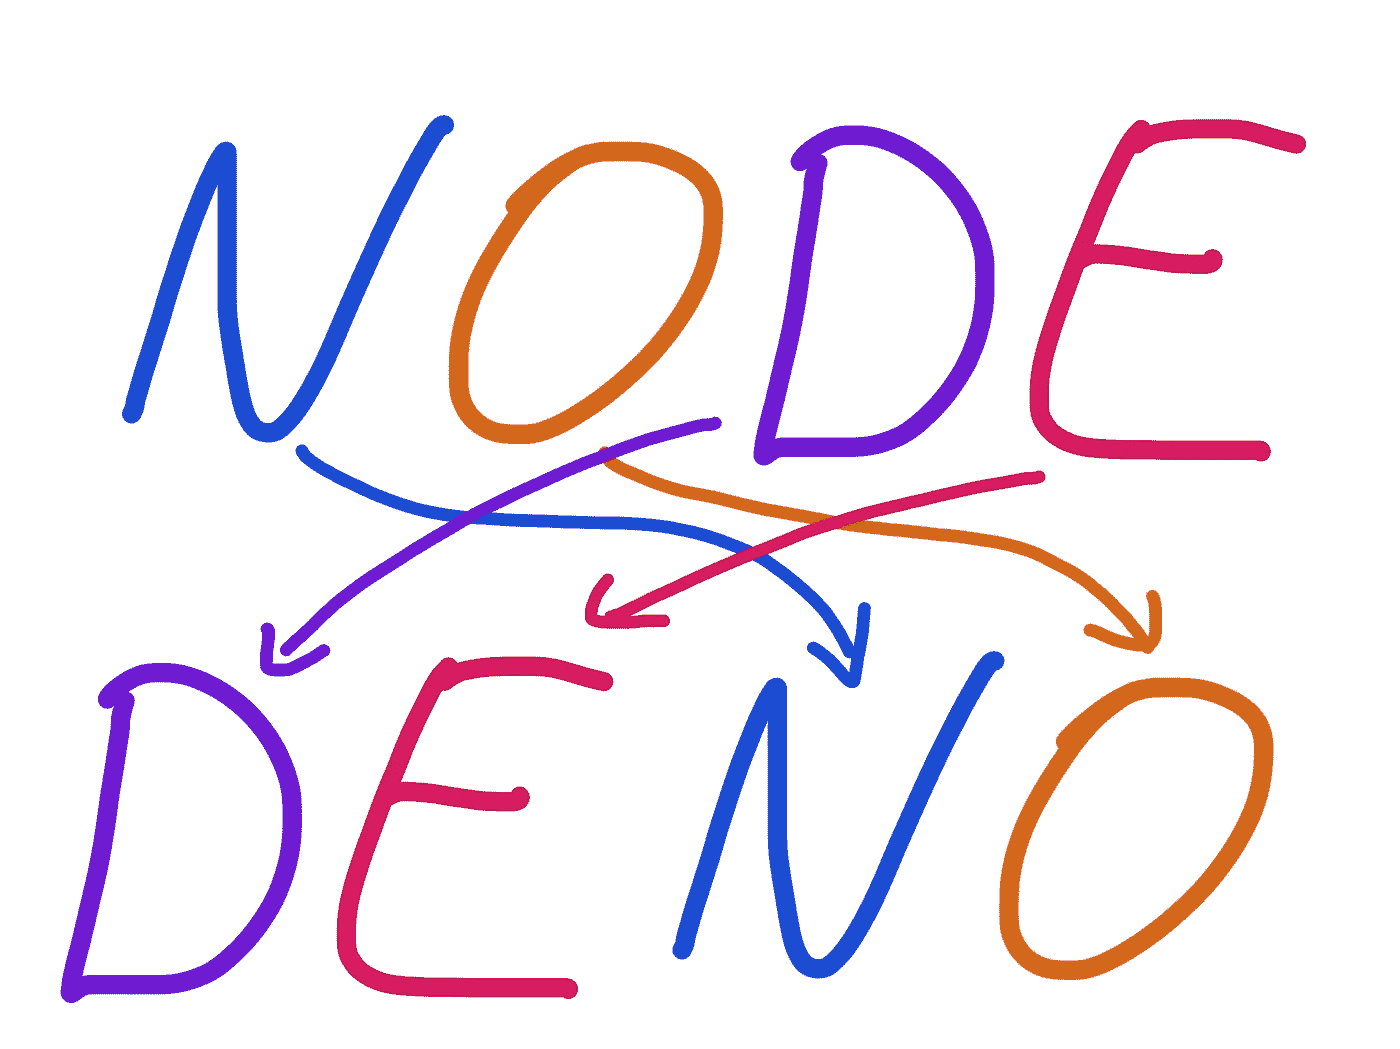 NODE
DENO